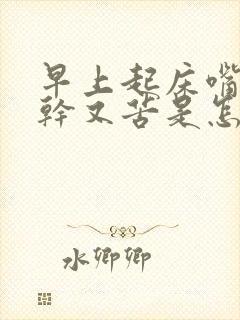 早上起床嘴
幹又苦是怎
水卿卿